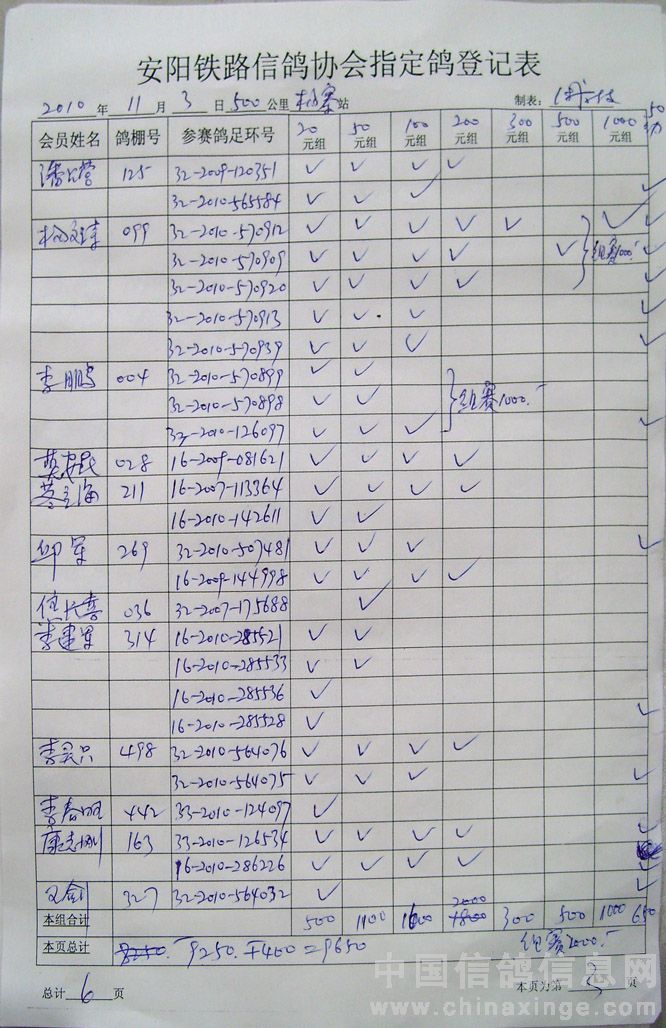 安阳铁路信鸽协会指定鸽登记表
2010 年 11 月 3 日 500 公里 站 制表:
会员姓名 鸽棚号 参赛鸽足环号 20元组 50元组 100元组 200元组 300元组 500元组 1000元组 50
125 32-2009-120351 ✓ ✓ ✓ ✓
32-2010-565584 ✓ ✓ ✓ ✓
099 32-2010-570912 ✓ ✓ ✓ ✓ ✓ ✓ ✓
32-2010-570909 ✓ ✓ ✓ ✓ ✓ 组赛1000.- ✓
32-2010-570920 ✓ ✓ ✓ ✓ ✓
32-2010-570913 ✓ ✓ ✓ ✓
32-2010-570939 ✓ ✓ ✓ ✓
李鹏 004 32-2010-570899 ✓ ✓
32-2010-570898 ✓ ✓ 组赛1000.-
33-2010-126097 ✓ ✓ ✓ ✓
028 16-2009-081621 ✓ ✓ ✓ ✓
211 16-2007-113364 ✓ ✓ ✓ ✓
16-2010-142611 ✓ ✓
邱军 269 32-2010-507481 ✓ ✓ ✓ ✓
16-2009-144998 ✓ ✓ ✓ ✓
036 32-2007-175688 ✓
李建军 314 16-2010-285521 ✓ ✓
16-2010-285533 ✓ ✓
16-2010-285536 ✓
16-2010-285528 ✓ ✓
498 32-2010-564076 ✓ ✓ ✓ ✓
32-2010-564075 ✓ ✓ ✓ ✓
李春旺 442 33-2010-124097 ✓
163 33-2010-126534 ✓ ✓ ✓ ✓ ✓
16-2010-286226 ✓ ✓ ✓ ✓
327 32-2010-564032 ✓ ✓
本组合计 500 1100 1600 2000 1800 300 500 1000 650
本页总计 8250.- 9250.+400=9650 组赛2000.-
总计 6 页 本页为第 3 页
中国信鸽信息网
www.chinaxinge.com